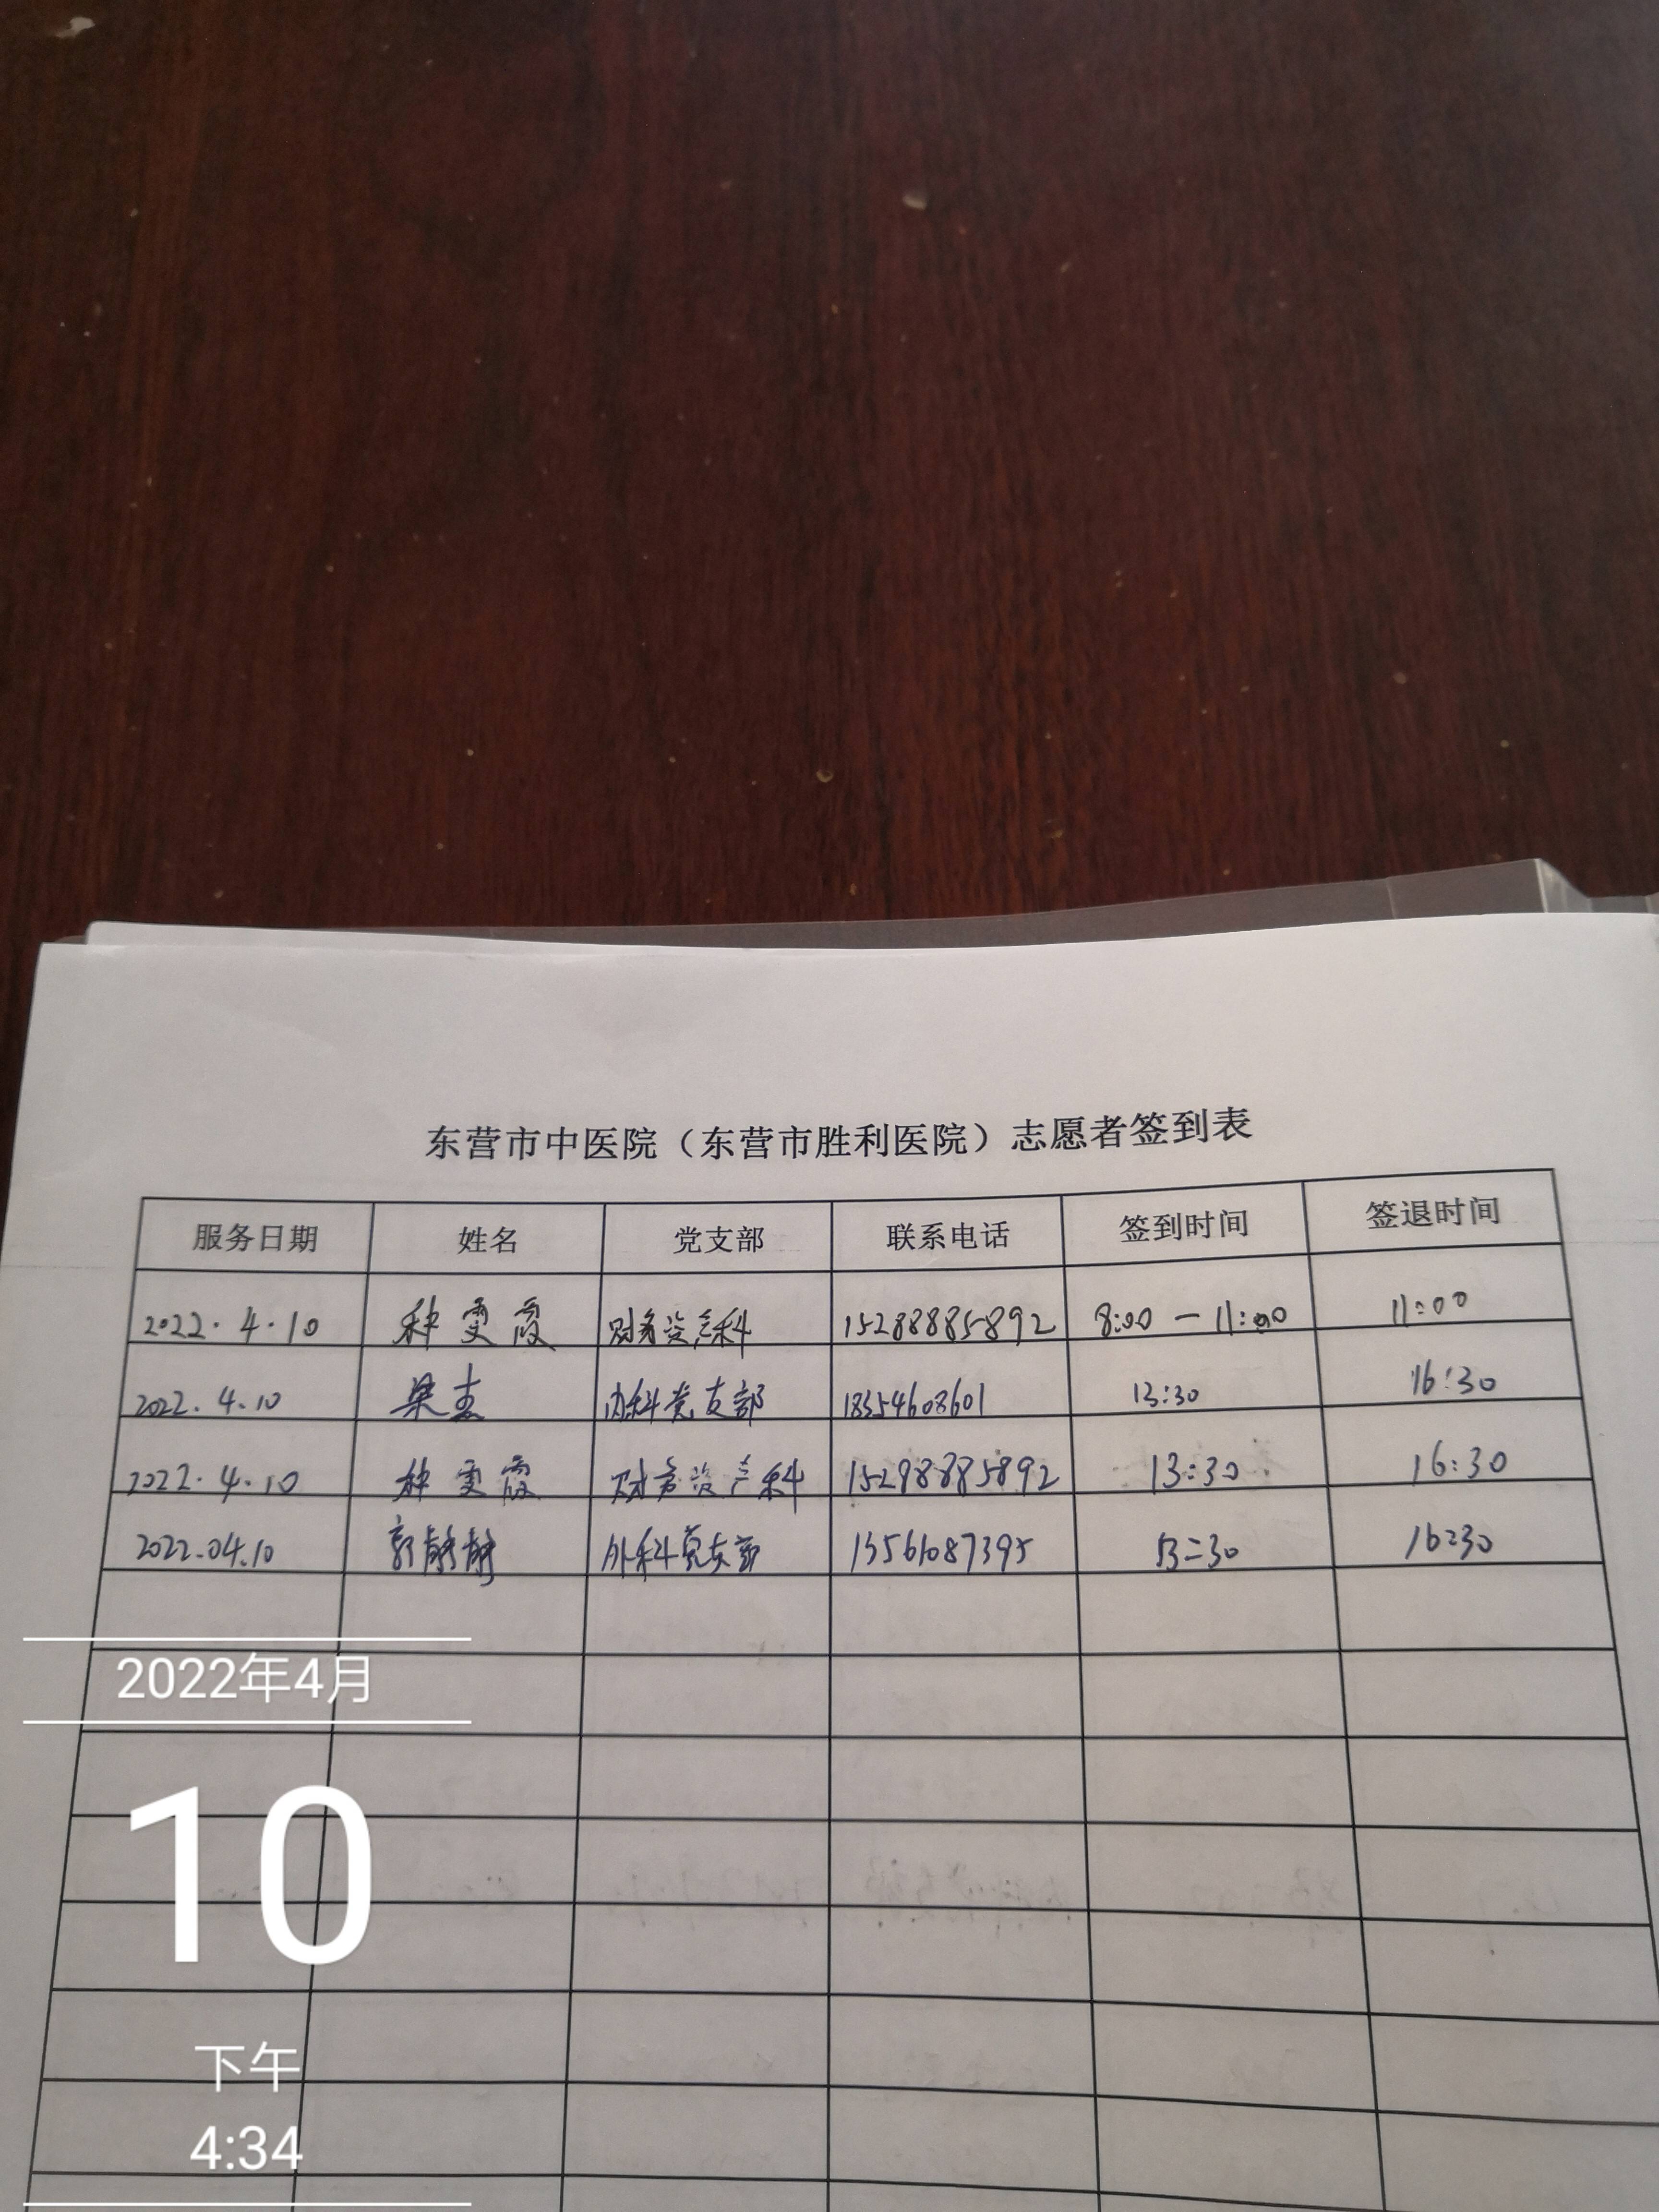 东营市中医院（东营市胜利医院）志愿者签到表
服务日期 姓名 党支部 联系电话 签到时间 签退时间
2022.4.10 种雯霞 财务资产科 15288885892 8:00—11:00 11:00
2022.4.10 内科党支部 18354608601 13:30 16:30
2022.4.10 种雯霞 财务资产科 15298885892 13:30 16:30
2022.04.10 郭静静 外科党支部 13561087395 13:30 16:30
2022年4月
10
下午
4:34